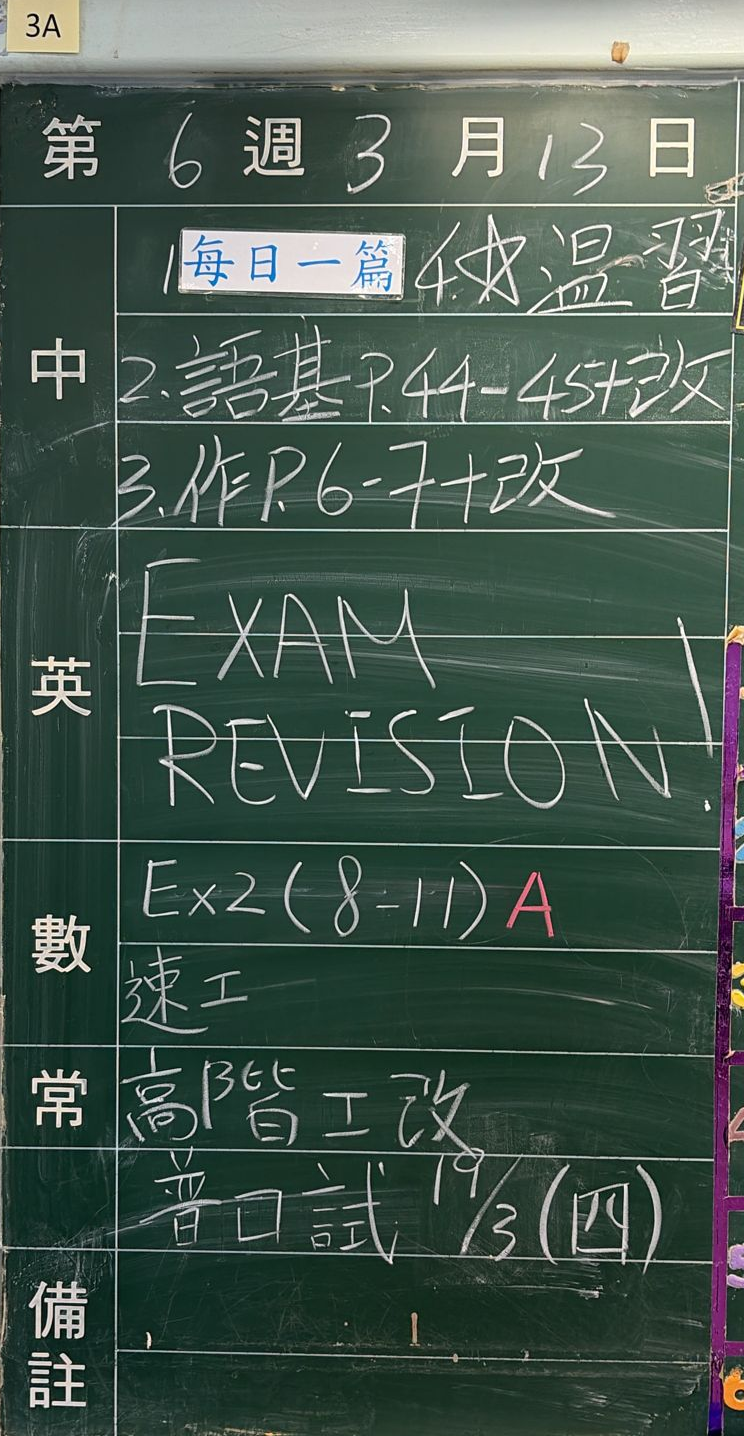 3A
第 6 週 3 月 13 日
中
1 每日一篇 4.☆溫習
2.語基P.44-45+改
3.作P.6-7+改
英
EXAM
REVISION!
數
Ex2(8-11)A
速工
常
高階工改
普口試 19/3(四)
備註